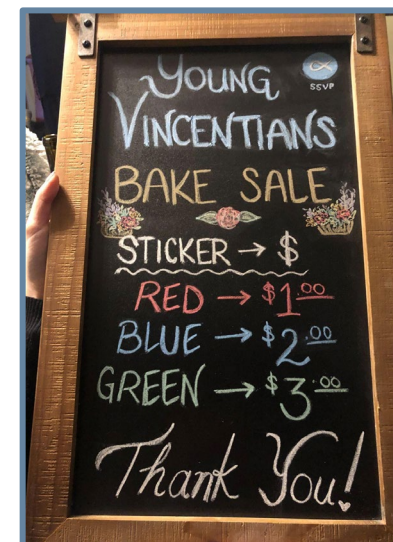 YOUNG
SSVP
VINCENTIANS
BAKE SALE
STICKER → $
RED → $1.00
BLUE → $2.00
GREEN → $3.00
Thank You!